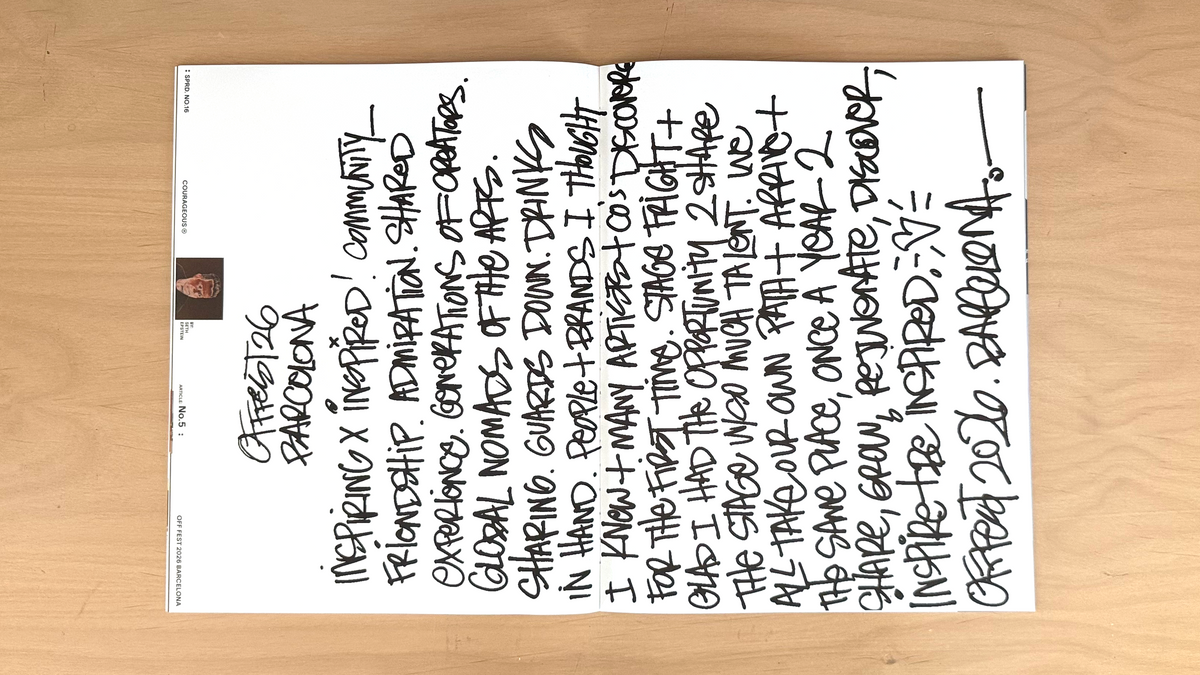 : SPRD. NO.16
COURAGEOUS ®
BY:
SETH
EPSTEIN
ARTICLE No.5 :
OFF FEST 2026 BARCELONA
OFFFEST 26
BARCELONA
INSPIRING X INSPIRED! COMMUNITY—
FRIENDSHIP. ADMIRATION. SHARED
EXPERIENCE. GENERATIONS OF CREATORS.
GLOBAL NOMADS OF THE ARTS.
SHARING. GUARDS DOWN. DRINKS
IN HAND. PEOPLE + BRANDS I THOUGHT
I KNEW + MANY ARTISTS + CO'S DISCOVERE
FOR THE FIRST TIME. STAGE FRIGHT +
GLAD I HAD THE OPPORTUNITY 2 SHARE
THE STAGE W/SO MUCH TALENT. WE
ALL TAKE OUR OWN PATH + ARRIVE +
THE SAME PLACE, ONCE A YEAR – 2
SHARE, GROW, REJUVENATE, DISCOVER,
INSPIRE + BE INSPIRED.
OFFFEST 2026. BARCELONA.—